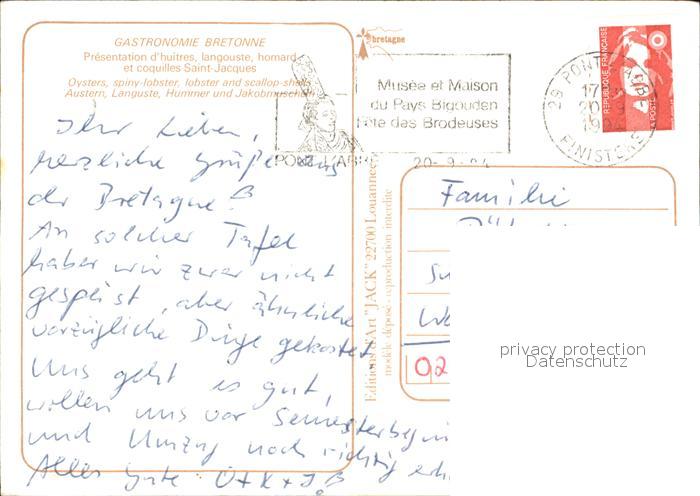 GASTRONOMIE BRETONNE
Présentation d'huîtres, langouste, homard
et coquilles Saint-Jacques
Oysters, spiny-lobster, lobster and scallop-shells
Austern, Languste, Hummer und Jakobmuscheln
bretagne
Musée et Maison
du Pays Bigouden
Fête des Brodeuses
PONT-L'ABBÉ
20-9-94
29 PONT-L'ABBÉ
17 H
20-9
1994
FINISTERE
REPUBLIQUE FRANÇAISE
LA POSTE
Ihr Lieben,
herzliche Grüße aus
der Bretagne!
An solcher Tafel
haben wir zwar nicht
gespeist, aber ähnliche
vorzügliche Dinge gekostet
Uns geht es gut,
wollen uns vor Semesterbeginn
und Umzug noch richtig erh
Alles Gute U+K+J.
Editions d'Art "JACK" 22700 Louannec
modèle déposé - reproduction interdite
Familie
02
privacy protection
Datenschutz